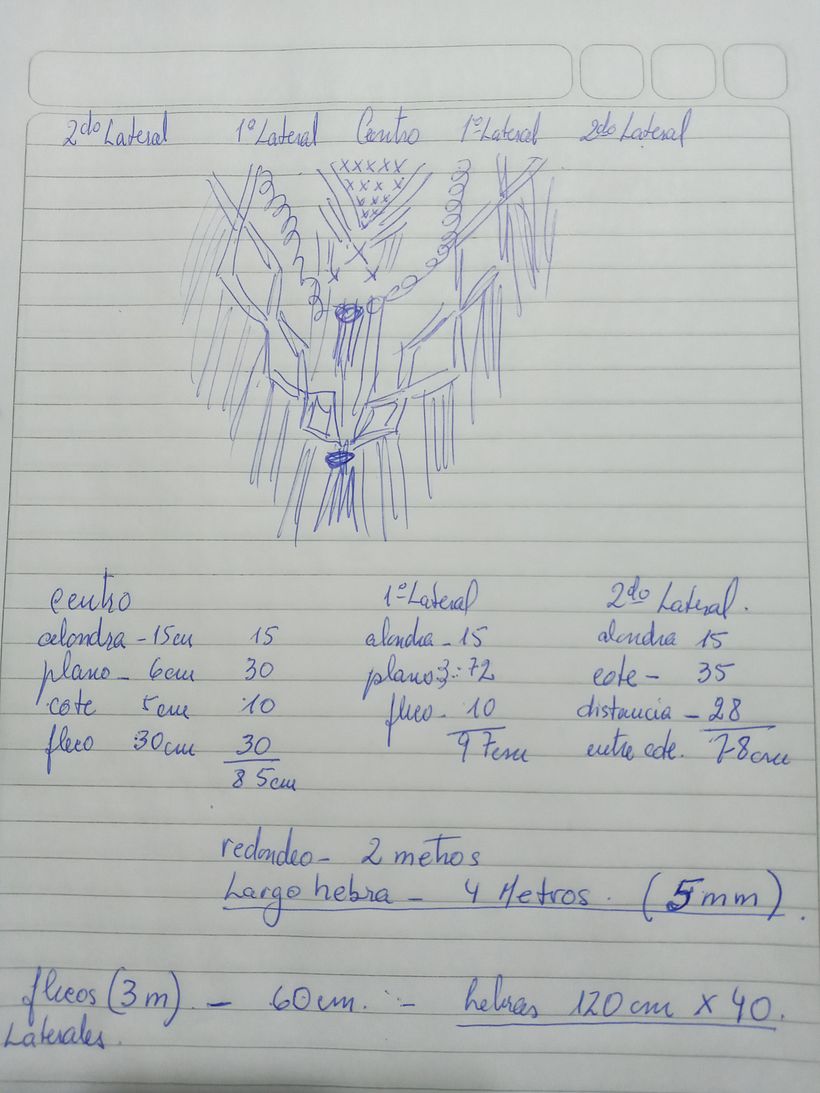 2do Lateral 1º Lateral Centro 1º Lateral 2do Lateral
centro 1º Lateral 2do Lateral.
alondra - 15cm 15 alondra - 15 alondra 15
plano - 6cm 30 plano 3: 72 cote - 35
cote 5cm 10 fleco - 10 distancia - 28
fleco 30cm 30 97cm entre cote. 78cm
85cm
redondeo - 2 metros
Largo hebra - 4 Metros. (5mm).
flecos (3m) - 60cm. - hebras 120cm x 40.
Laterales.